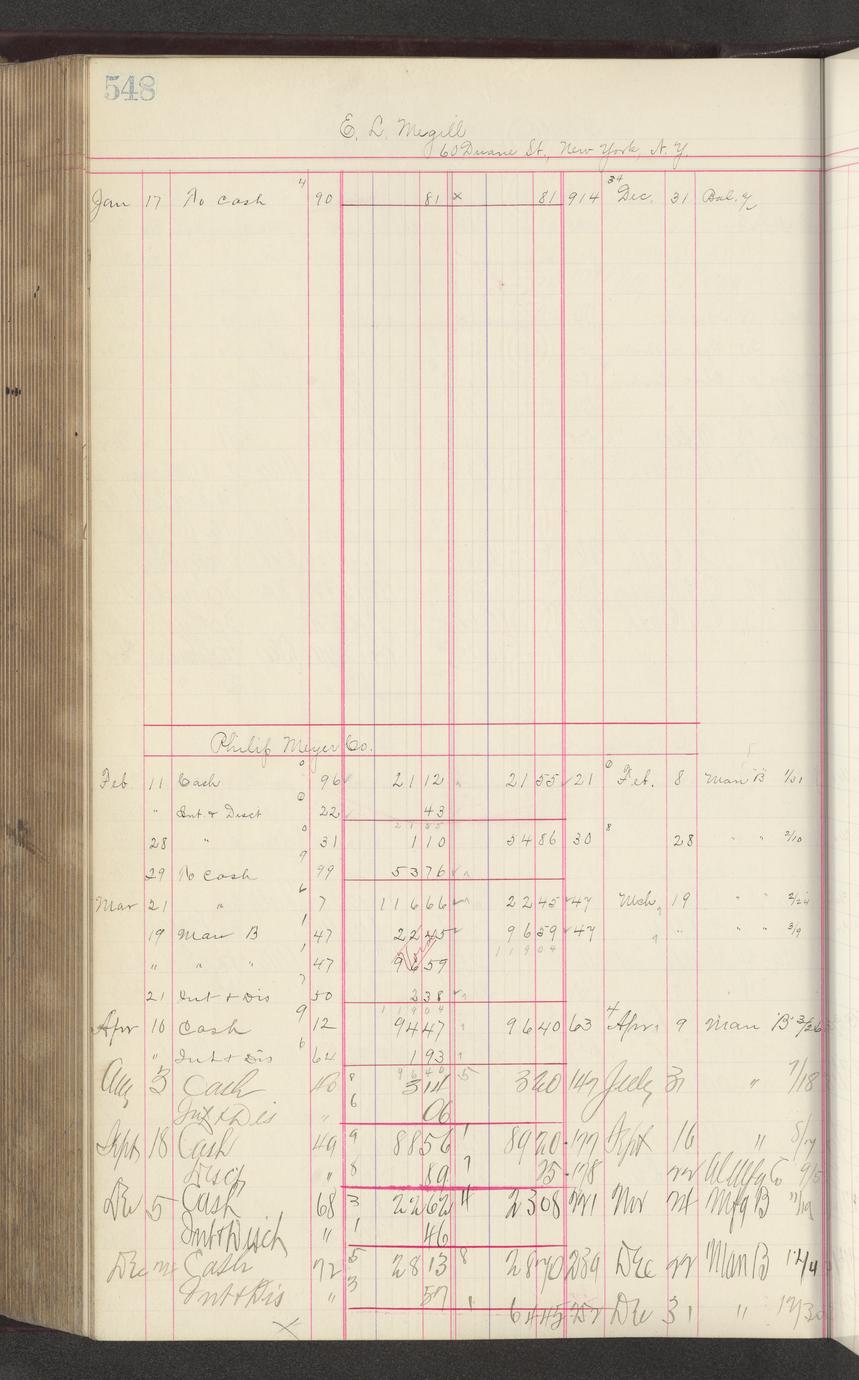 548
E. L. Megill
60 Duane St., New York, N. Y.
Jan 17 To Cash 4 90 81 x 81 914 34 Dec. 31 Bal.
Philip Meyer Co.
Feb 11 Cash 0 96 21 12 21 55 21 0 Feb. 8 Man "B" 1/31
" Int & Disct 0 22 43
21 55
28 " 0 31 1 10 54 86 30 8 28 " " 2/10
29 To Cash 9 99 53 76
Mar 21 " 6 7 116 66 22 45 47 Mch 19 " " 2/24
19 Man B 1 47 22 45 96 59 47 " " " 3/9
" " " 1 47 96 59 119 04
21 Int & Dis 7 50 2 38
119 04
Apr 10 Cash 9 12 94 47 96 40 63 4 Apr 9 Man "B" 3/26
" Int & Dis 6 64 1 93
96 40
Aug 3 Cash 8 3 14 5 3 20 147 July 31 " 7/18
Int & Dis " 6 06
Sept 18 Cash 49 9 88 56 1 89 20 177 Sept 16 "
Disct " 8 89 7 25 178 22 9/5
Dec 5 Cash 68 3 22 62 4 23 08 221 Nov 24 Mfg B 11/19
Int & Disct " 1 46
Dec Cash 72 5 28 13 8 28 70 239 Dec 22 Man B 12/4
Int & Dis " 3 57 1
64 45 252 Dec 31 " 12/30
x